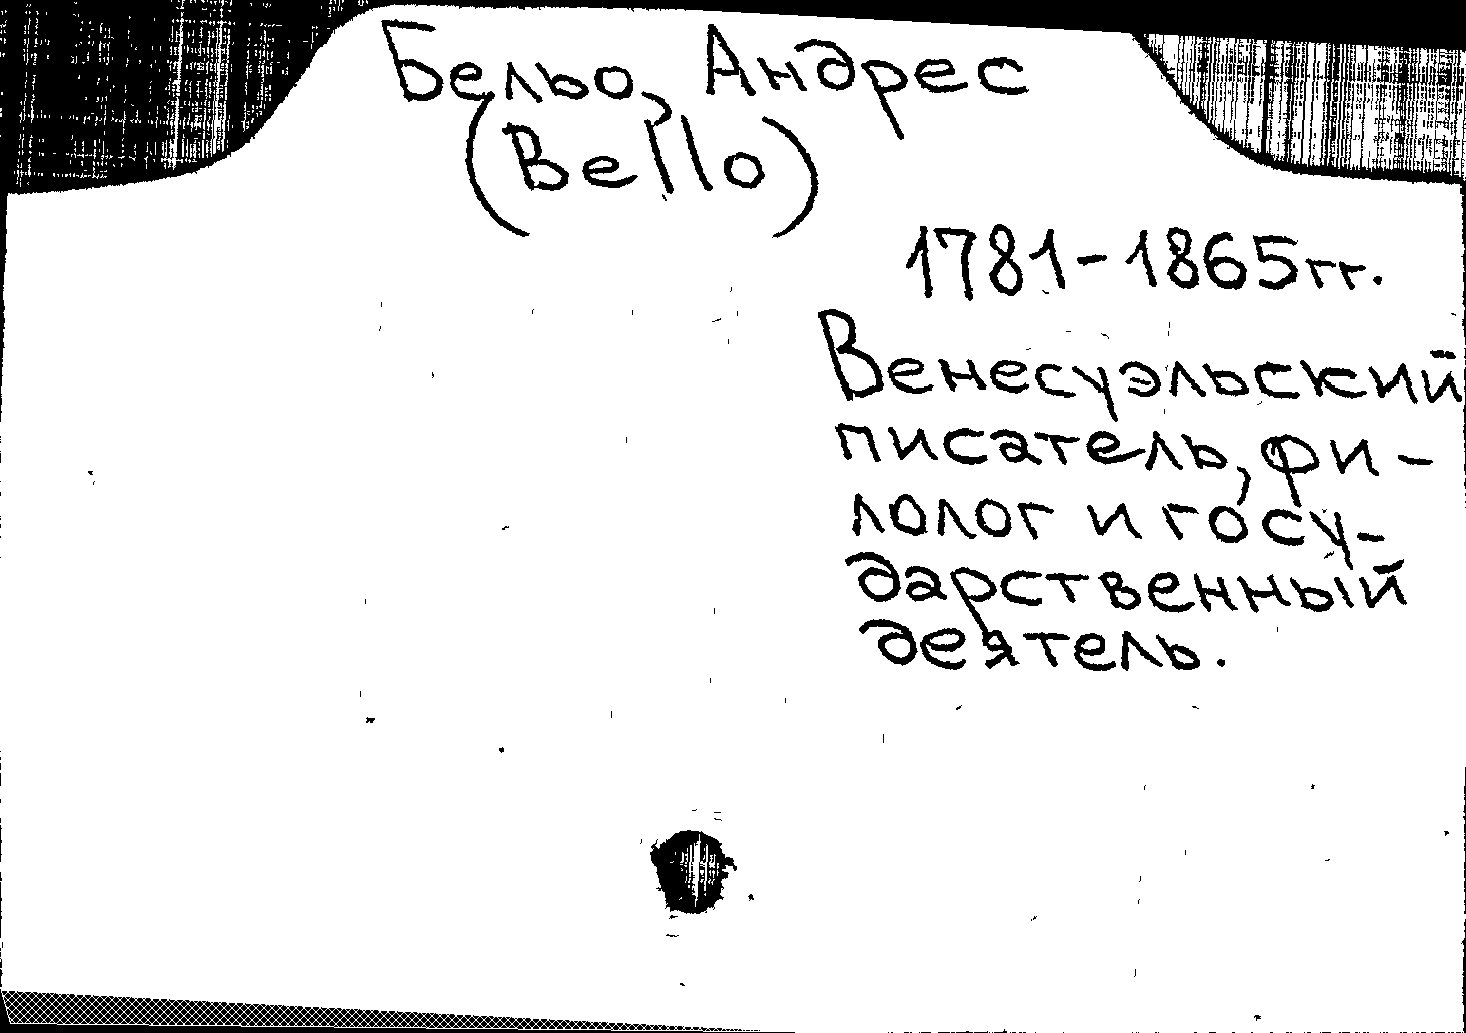 Бельо, Андрес
(Bello)
1781-1865гг.
Венесуэльский
писатель, фи-
лолог и госу-
дарственный
деятель.